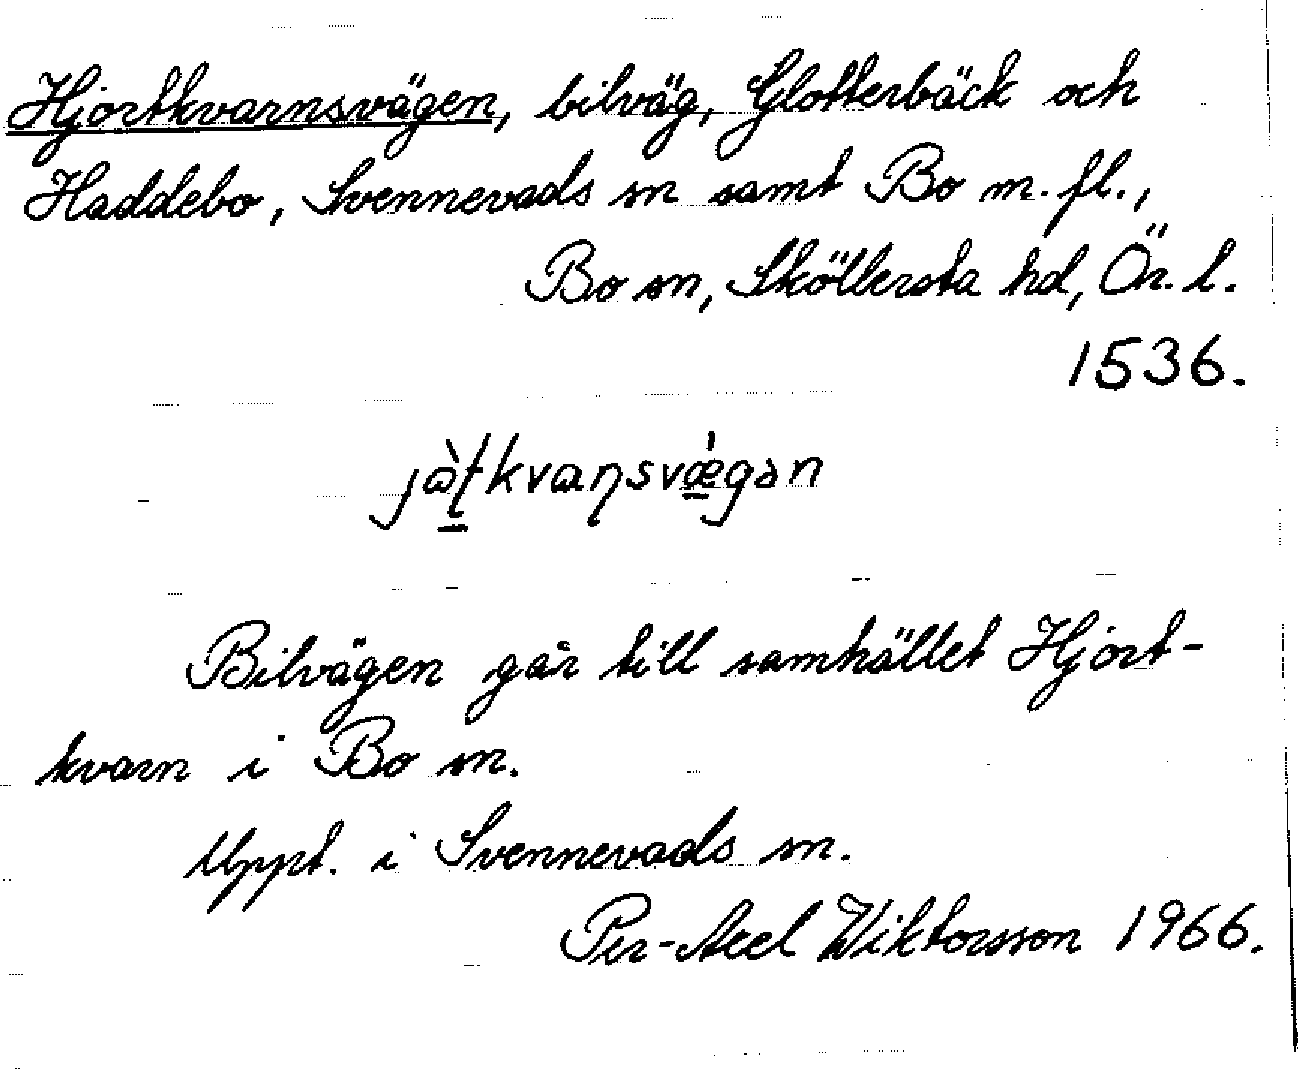 Hjortkvarnsvägen, bilväg, Glotterbäck och
Haddebo, Svennevads sn samt Bo m. fl.,
Bo sn, Sköllersta hd, Ör. l.
1536.
jàt̠kvaɳsvǽ̠gən
Bilvägen går till samhället Hjort-
kvarn i Bo sn.
Uppt. i Svennevads sn.
Per-Axel Wiktorsson 1966.